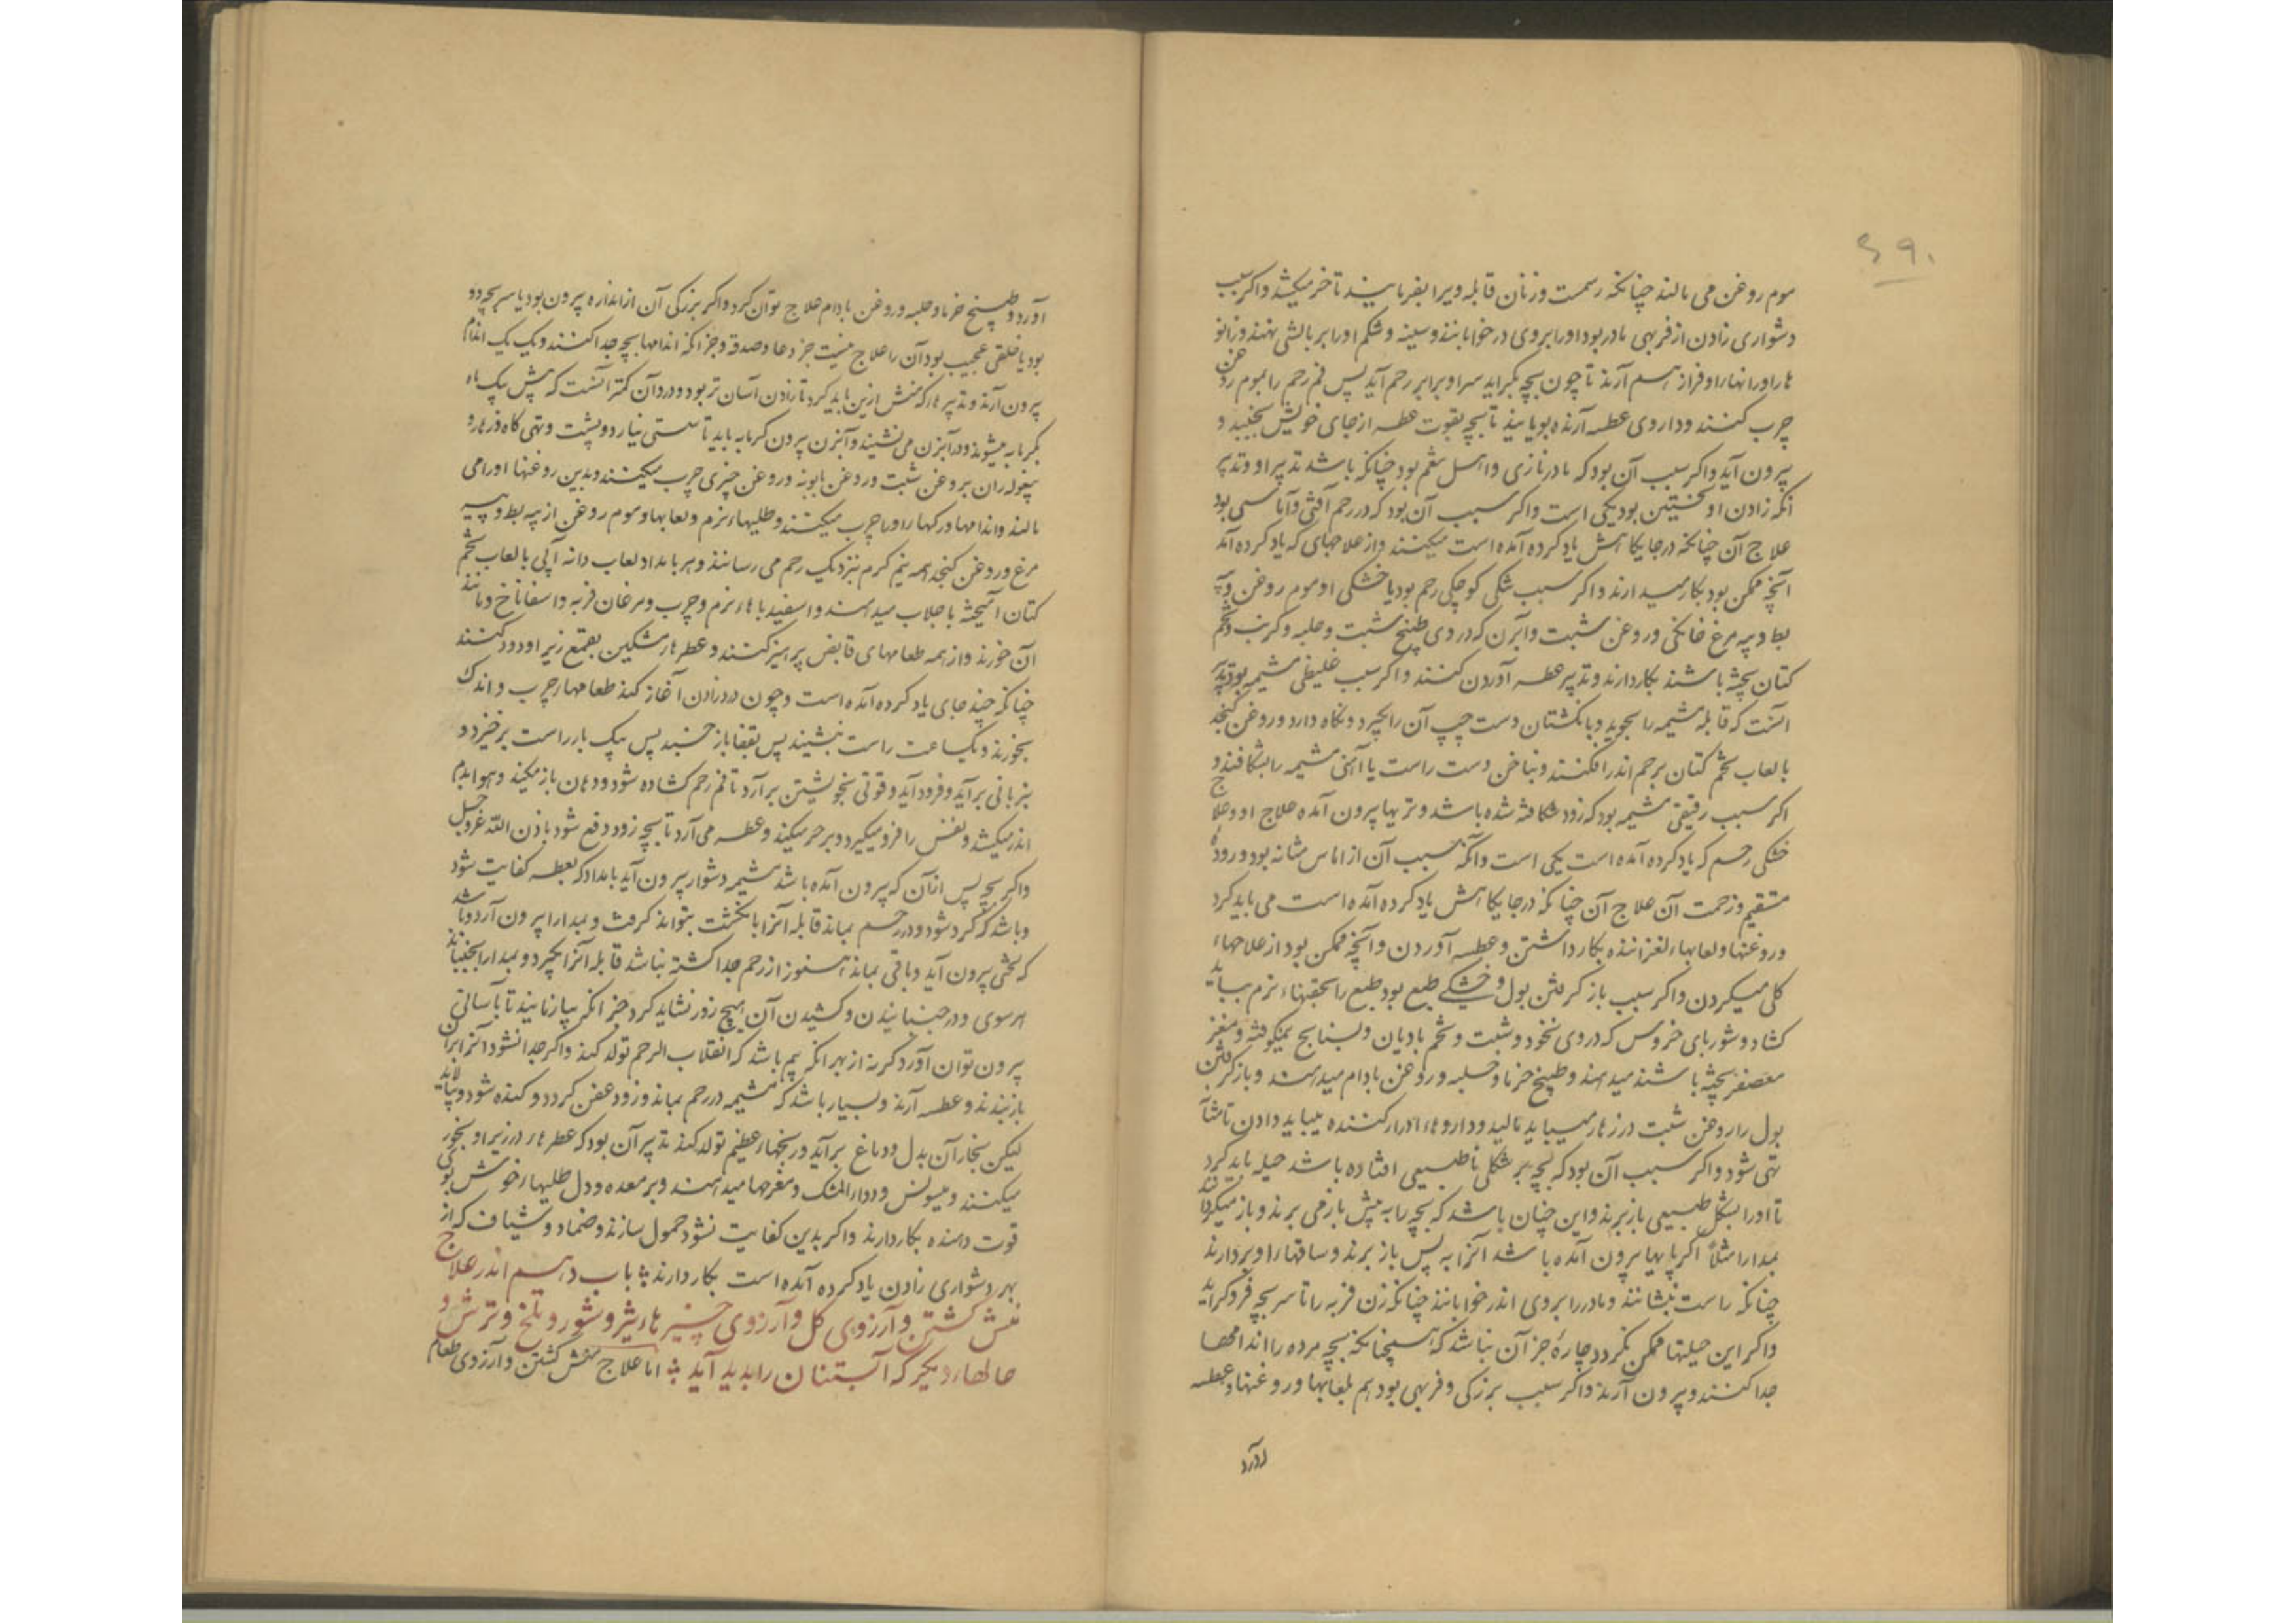 ۶۹۰
موم روغن می مالند چنانکه رسمست وزنان قابله ویرا بفرمایند تا خر میکشد واکر سبب
دشواری زادن از فربهی مادر بود اورا بروی درخوابانند وسینه وشکم اورا بر بالشی نهند وزانو
ها را ورانها را فراز هم آرند تا چون بچه بکراید سر او برابر رحم آید پس فم رحم را بموم روغن
چرب کنند وداروی عطسه آرنده بویانید تا بچه بقوت عطسه از جای خویش بجنبد و
بیرون آید واکر سبب آن بود که مادر نازی واهل نعم بود چنانکه باشد تدبیر او وتدبیر
انکه زادن او نخستین بود یکی است واکر سبب آن بود که در رحم آفتی وآماسی بود
علاج آن چنانکه در جایکاهش یاد کرده آمده است میکنند واز علاجهای که یاد کرده آمد
آنچه ممکن بود بکار میدارند واکر سبب شکی کوچکی رحم بود یا خشکی او موم روغن وپیه
بط وپیه مرغ خانکی وروغن شبت وآبزن که در وی طبیخ شبت وحلبه وکرنب وتخم
کتان پخته باشند بکار دارند وتدبیر عطسه آوردن کنند واکر سبب غلیظی مشیمه بود تدبیر
انست که قابله مشیمه را بجوید وبانکشتان دست چپ آن را بگیرد ونکاه دارد وروغن کنجد
بالعاب تخم کتان برحم اندر افکنند وبناخن دست راست یا آهنی مشیمه را بشکافند و
اکر سبب رقیقی مشیمه بود که زود شکافته شده باشد وتریها بیرون آمده علاج او وعلاج
خشکی رحم که یاد کرده آمده است یکی است وانکه سبب آن از آماس مثانه بود ورودهٔ
مستقیم وزحمت آن علاج آن چنانکه در جایکاهش یاد کرده آمده است می باید کرد
وروغنها ولعابهاء لغزاننده بکار داشتن وعطسه آوردن وآنچه ممکن بود از علاجهاء
کلی میکردن واکر سبب باز کرفتن بول وخشکی طبع بود طبع را بحقنهاء نرم بباید
کشاد وشوربای خروس که در وی نخود وشبت وتخم بادیان وبسفایج نیمکوفته ومغز
معصفر پخته باشند میدهند وطبیخ خرما وحلبه وروغن بادام میدهند وبازکرفتن
بول را روغن شبت در زهار میباید مالید وداروهاء ادرار کننده میباید دادن تا مثانه
تهی شود واکر سبب آن بود که بچه بر شکلی ناطبیعی افتاده باشد حیله باید کرد
تا اورا بشکل طبیعی باز برند واین چنان باشد که بچه را به پیش باز می برند وباز میکردانند
بمدارا مثلاً اکر پایها بیرون آمده باشد آنرا به پس باز برند وساقها را وبردارند
چنانکه راست بنشانند ومادر را بروی اندر خوابانند چنانکه زن فربه را تا سر بچه فرو کراید
واکر این حیلتها ممکن نکردد چارهٔ جز آن نباشد که همچنانکه بچه مرده را اندامها
جدا کنند وبیرون آرند واکر سبب بزرکی وفربهی بود هم بلعابها وروغنها وعطسه
آورد
آورد وطبیخ خرما وحلبه وروغن بادام علاج توان کرد واکر بزرکی آن از اندازه بیرون بود یا سر بچه دو
بود یا خلقی عجیب بود آن را علاج نیست جز دعا وصدقه وجز انکه اندامهاء بچه جدا کنند ویک یک اندام
بیرون آرند وتدبیرها که پیش ازین باید کرد تا زادن آسان تر بود ودرد آن کمتر آنست که پیش یک ماه
بکرمابه میشوند ودر آبزن می نشیند وآبزن بیرون کرمابه باید تا سستی نیارد وپشت وتهی کاه وزهار و
بیغوله ران بروغن شبت وروغن بابونه وروغن خیری چرب میکنند وبدین روغنها اورا می
مالند واندامها ورکها را وی را چرب میکنند وطلیهاء نرم ولعابها وموم روغن از پیه بط وپیه
مرغ وروغن کنجد همه نیم کرم بنزدیک رحم می رسانند وهر بامداد لعاب دانه آبی یا لعاب تخم
کتان آمیخته با جلاب میدهند واسفیدباهاء نرم وچرب ومرغان فربه واسفاناخ ومانند
آن خورند واز همه طعامهای قابض پرهیز کنند وعطرهاء مشکین بقمع زیر او دود کنند
چنانکه چند جای یاد کرده آمده است وچون درد زادن آغاز کند طعامهاء چرب واندک
بخورند ویکساعت راست بنشیند پس بقفا باز خسبد پس بیک بار راست برخیزد و
بنربانی برآید وفرود آید وقوتی بخویشتن برآرد تا فم رحم کشاده شود ودهان باز میکند وهوا بدم
اندر میکشد ونفس را فرو میکیرد وبر خر میکند وعطسه می آرد تا بچه زود دفع شود باذن الله عزوجل
واکر بچه پس از آن که بیرون آمده باشد مشیمه دشوار بیرون آید بامداد که بعطسه کفایت شود
وباشد که کرد شود ودر رحم بماند قابله آنرا بانکشت بتواند کرفت وبمدارا بیرون آرد وباشد
که لختی بیرون آید وباقی بماند هنوز از رحم جدا کشته نباشد قابله آنرا بگیرد وبمدارا بجنباند
هر سوی ودر جنبانیدن وکشیدن آن هیچ زور نشاید کرد جز انکه بیازمایند تا بآسانی
بیرون توان آورد کر نه از بهر انکه بیم باشد که انقلاب الرحم تولد کند واکر جدا نشود آنرا بران
باز بندند وعطسه آرند وبسیار باشد که مشیمه در رحم بماند وزود عفن کردد وکنده شود وبپالاید
لیکن بخار آن بدل ودماغ برآید ورنجهاء عظیم تولد کند تدبیر آن بود که عطرها در زیر او بخور
میکنند ومیسوس ودواء المشک ومفرحها میدهند وبر معده ودل طلیهاء خوش بوی
قوت دهنده بکار دارند واکر بدین کفایت نشود حمول سازند وضماد وشیاف که از
بهر دشواری زادن یاد کرده آمده است بکار دارند باب دهم اندر علاج
منش کشتن وآرزوی کل وآرزوی چیزهاء تیز وشور وتلخ وترش و
حالهاء دیگر که آبستنان را بدید آید اما علاج منش کشتن وآرزوی طعام